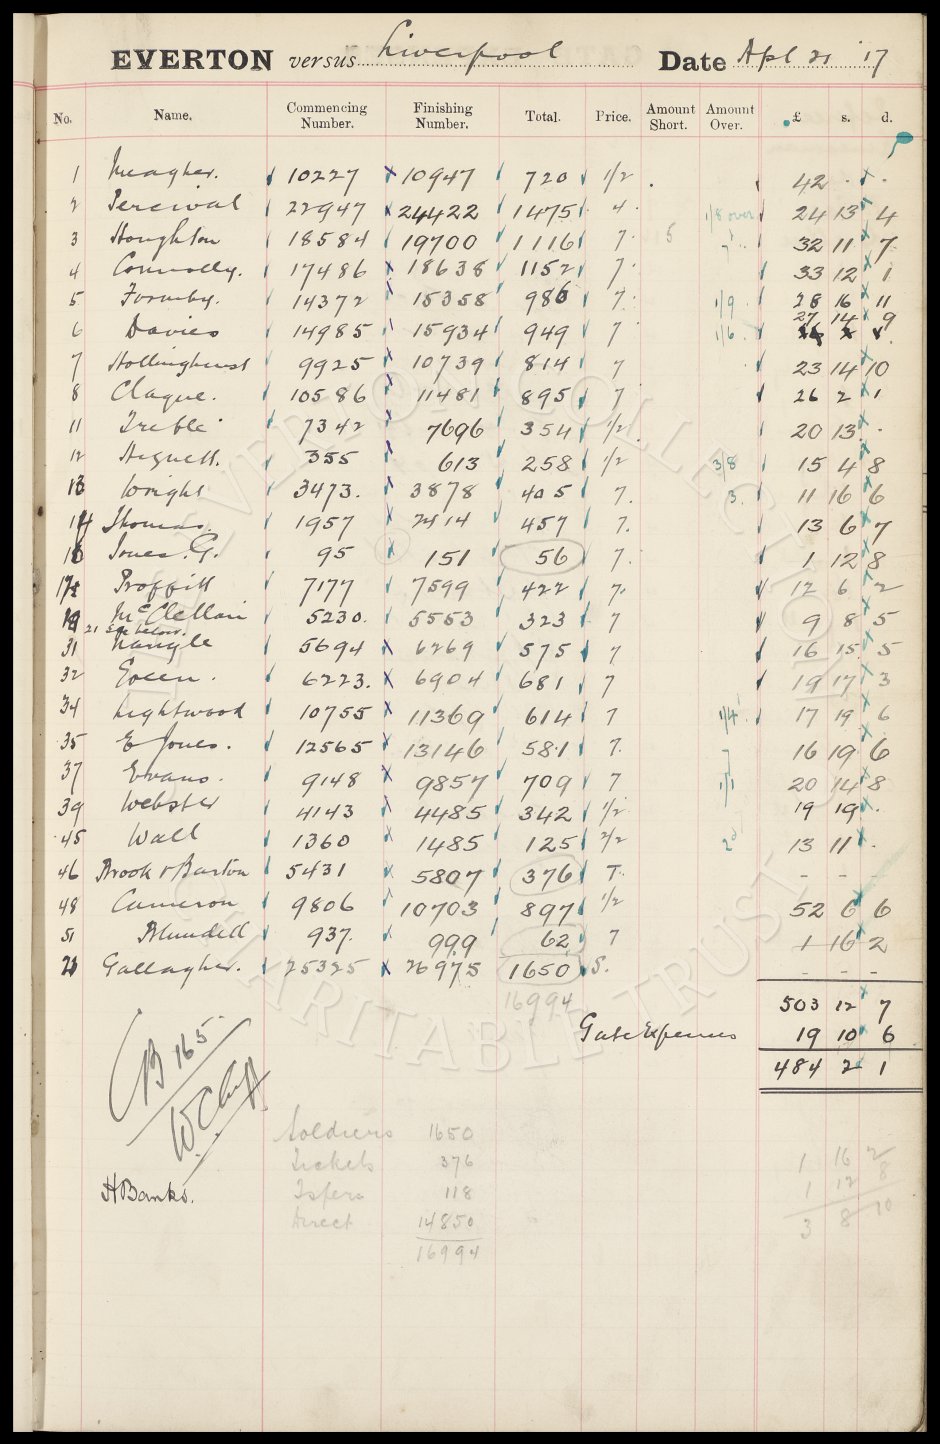 EVERTON versus Liverpool Date Apl 21 '17
No. Name. Commencing Number. Finishing Number. Total. Price. Amount Short. Amount Over. £ s. d.
1 Meagher. 10227 10947 720 1/2 42 . .
2 Percival 22947 24422 1475 4 1/8 over 24 13 4
3 Houghton 18584 19700 1116 7. 5 32 11 7
4 Connolly. 17486 18638 1152 7. 33 12 1
5 Formby. 14372 15358 986 7. 1/9 28 16 11
6 Davies 14985 15934 949 7 1/6 27 14 9
7 Hollinghurst 9925 10739 814 7 23 14 10
8 Clague. 10586 11481 895 7 26 2 1
11 Treble 7342 7696 354 1/2 20 13 .
12 Hignett. 355 613 258 1/2 3/8 15 4 8
13 Wright 3473. 3878 405 7. 3. 11 16 6
14 Thomas. 1957 2414 457 7. 13 6 7
Jones. G. 95 151 56 7. 1 12 8
17 Proffitt 7177 7599 422 7. 12 6 2
McClellan 5230. 5553 323 7 9 8 5
21 See below.
31 Nangle 5694 6269 575 7 16 15 5
32 Green. 6223. 6904 681 7 19 17 3
34 Lightwood 10755 11369 614 7 1/4 17 19 6
35 E Jones. 12565 13146 581 7. 16 19 6
37 Evans. 9148 9857 709 7 1/1 20 14 8
39 Webster 4143 4485 342 1/2 19 19 .
45 Wall 1360 1485 125 2/2 2d 13 11 .
46 Brook & Barton 5431 5807 376 T. - - -
48 Cameron 9806 10703 897 1/2 52 6 6
51 Blundell 937. 999 62 7 1 16 2
21 Gallagher. 25325 26975 1650 S. - - -
16994 503 12 7
Gate Expenses 19 10 6
484 2 1
B 165
W.C. Cuff
Soldiers 1650
Tickets 376 1 16 2
H Banks. Tsfers 118 1 12 8
Direct 14850 3 8 10
16994
EVERTON COLLECTION
CHARITABLE TRUST